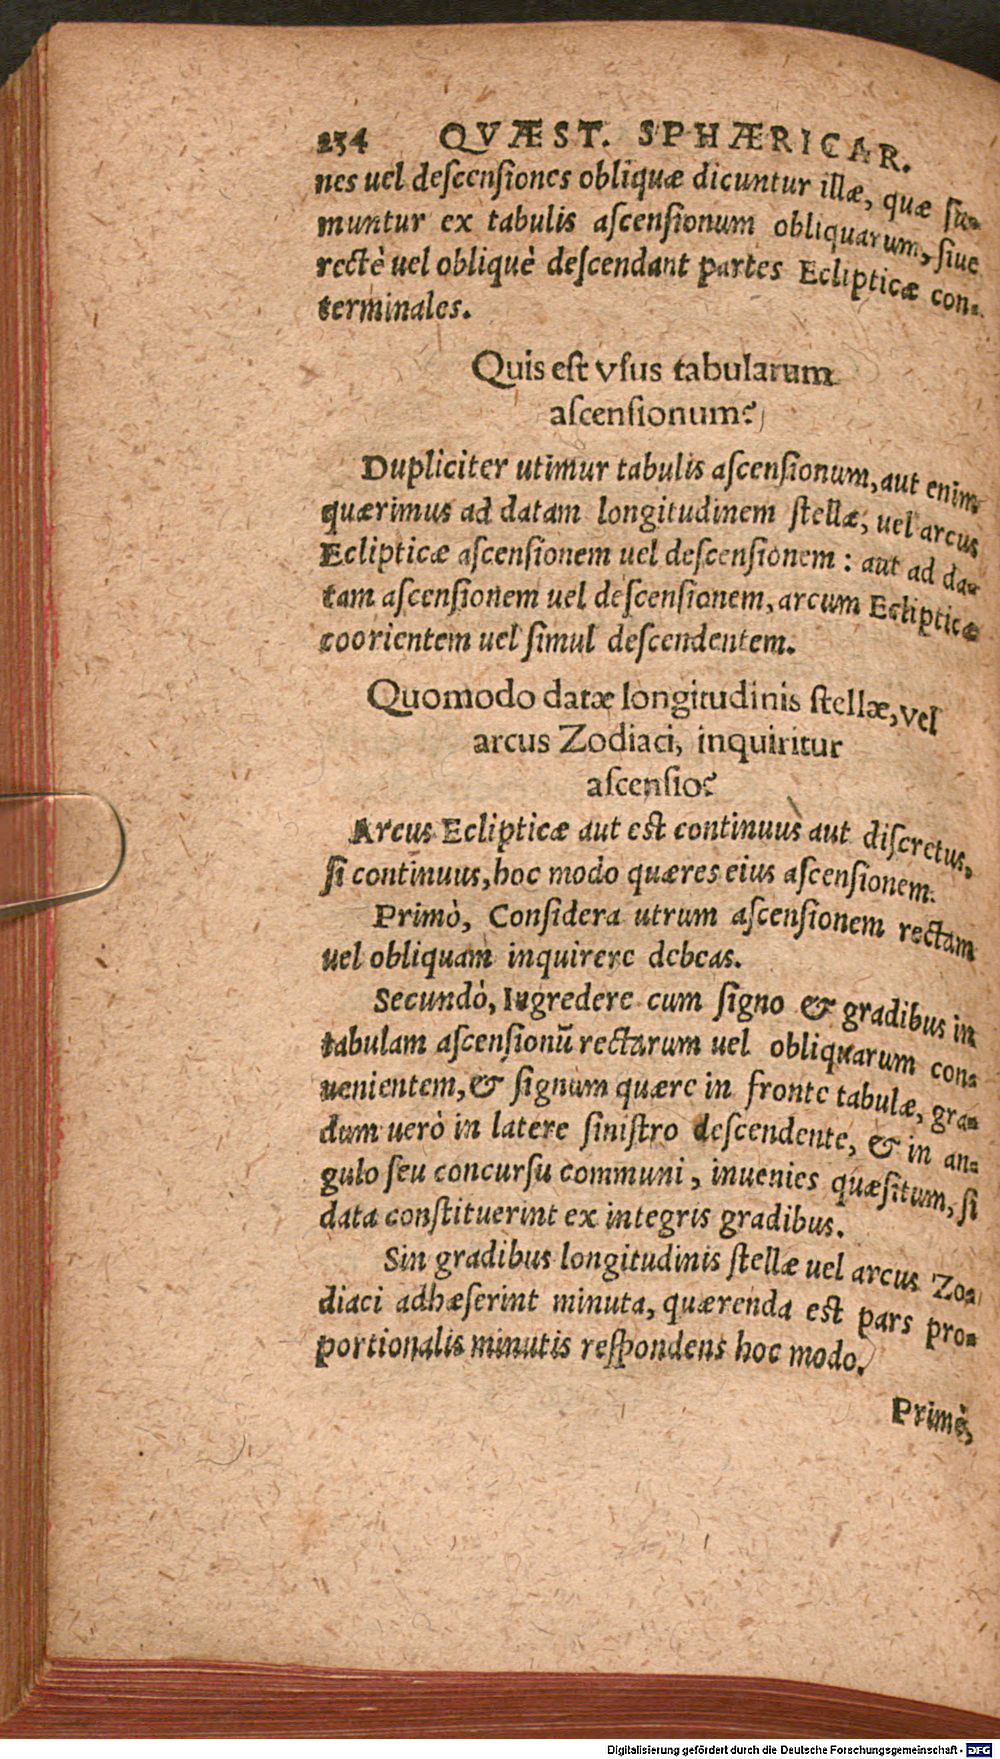 234 QVÆST. SPHÆRICAR.
nes uel deſcenſiones obliquæ dicuntur illæ, quæ ſu-
muntur ex tabulis aſcenſionum obliquarum, ſiue
rectè uel obliquè deſcendant partes Eclipticæ con-
terminales.
Quis eſt vſus tabularum
aſcenſionum?
Dupliciter utimur tabulis aſcenſionum, aut enim
quærimus ad datam longitudinem ſtellæ, uel arcus
Eclipticæ aſcenſionem uel deſcenſionem: aut ad da-
tam aſcenſionem uel deſcenſionem, arcum Eclipticæ
coorientem uel ſimul deſcendentem.
Quomodo datæ longitudinis ſtellæ, vel
arcus Zodiaci, inquiritur
aſcenſio?
Arcus Eclipticæ aut eſt continuus aut diſcretus,
ſi continuus, hoc modo quæres eius aſcenſionem.
Primò, Conſidera utrum aſcenſionem rectam
uel obliquam inquirere debeas.
Secundò, Iugredere cum ſigno & gradibus in
tabulam aſcenſionũ rectarum uel obliquarum con-
uenientem, & ſignum quære in fronte tabulæ, gra-
dum uerò in latere ſiniſtro deſcendente, & in an-
gulo ſeu concurſu communi, inuenies quæſitum, ſi
data conſtituerint ex integris gradibus.
Sin gradibus longitudinis ſtellæ uel arcus Zo-
diaci adhæſerint minuta, quærenda eſt pars pro-
portionalis minutis reſpondens hoc modo.
Primò,
Digitalisierung gefördert durch die Deutsche Forschungsgemeinschaft - DFG